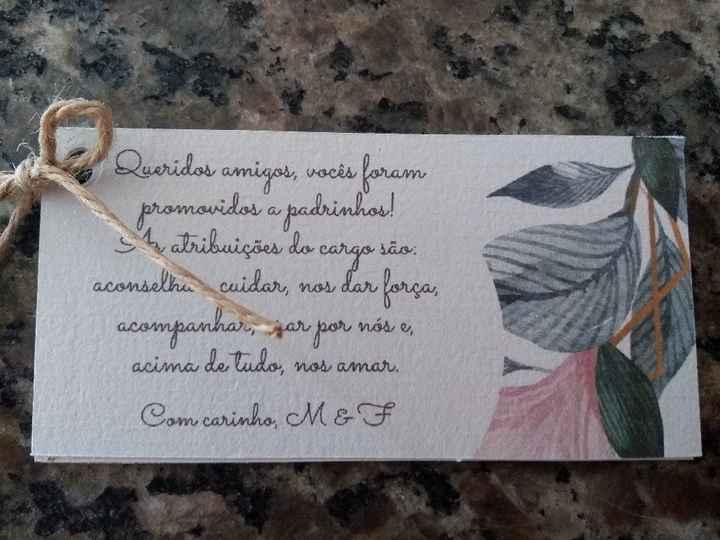 Queridos amigos, vocês foram
promovidos a padrinhos!
As atribuições do cargo são:
aconselhar, cuidar, nos dar força,
acompanhar, orar por nós e,
acima de tudo, nos amar.
Com carinho, M & F